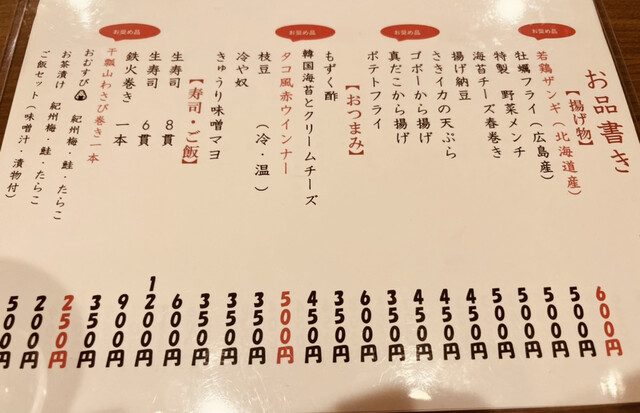 お品書き
【揚げ物】
若鶏ザンギ(北海道産)
牡蠣フライ(広島産)
特製 野菜メンチ
海苔チーズ春巻き
揚げ納豆
さきイカの天ぷら
ゴボーから揚げ
真だこから揚げ
ポテトフライ
【おつまみ】
もずく酢
韓国海苔とクリームチーズ
タコ風赤ウインナー
枝豆 (冷・温)
冷や奴
きゅうり味噌マヨ
【寿司・ご飯】
生寿司 8貫
生寿司 6貫
鉄火巻き 一本
干瓢山わさび巻き一本
おむすび 紀州梅・鮭・たらこ
お茶漬け 紀州梅・鮭・たらこ
ご飯セット(味噌汁・漬物付)
お奨め品
お奨め品
お奨め品
お奨め品
600円
500円
500円
500円
450円
450円
450円
350円
600円
350円
450円
500円
350円
350円
350円
600円
1200円
900円
350円
250円
200円
500円